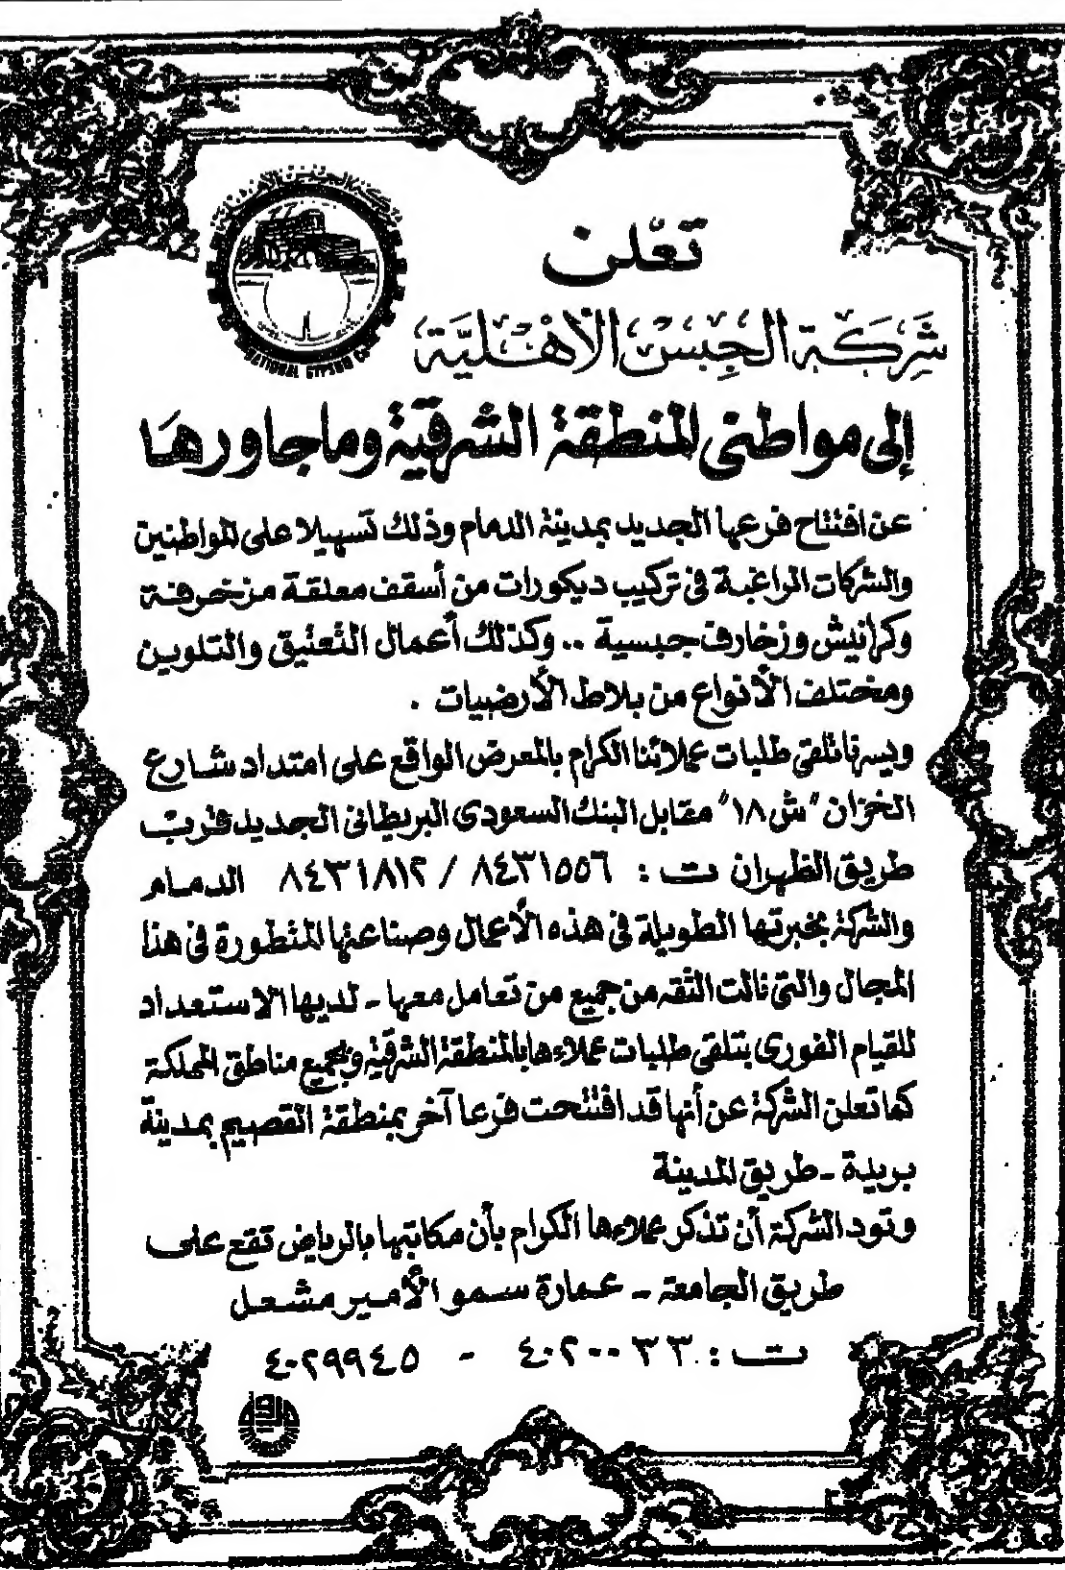 تعلن
شركة الجبس الأهلية
NATIONAL GYPSUM CO
إلى مواطنى المنطقة الشرقية وماجاورها
عن افتتاح فرعها الجديد بمدينة الدمام وذلك تسهيلا على المواطنين
والشركات الراغبة فى تركيب ديكورات من أسقف معلقة مزخرفة
وكرانيش وزخارف جبسية .. وكذلك أعمال التعتيق والتلوين
ومختلف الأنواع من بلاط الأرضيات .
ويسرنا تلقى طلبات عملائنا الكرام بالمعرض الواقع على امتداد شارع
الخزان "ش ١٨" مقابل البنك السعودى البريطانى الجديد قرب
طريق الظهران ت : ٨٤٣١٥٥٦ / ٨٤٣١٨١٢ الدمام
والشركة بخبرتها الطويلة فى هذه الأعمال وصناعتها المتطورة فى هذا
المجال والتى نالت الثقه من جميع من تعامل معها - لديها الاستعداد
للقيام الفورى بتلقى طلبات عملاءها بالمنطقة الشرقية وبجميع مناطق المملكة
كما تعلن الشركة عن أنها قد افتتحت فرعا آخر بمنطقة القصيم بمدينة
بريدة - طريق المدينة
وتود الشركة أن تذكر عملاءها الكرام بأن مكاتبها بالرياض تقع على
طريق الجامعة - عمارة سمو الأمير مشعل
ت : ٤٠٢٠٠٣٣ - ٤٠٢٩٩٤٥